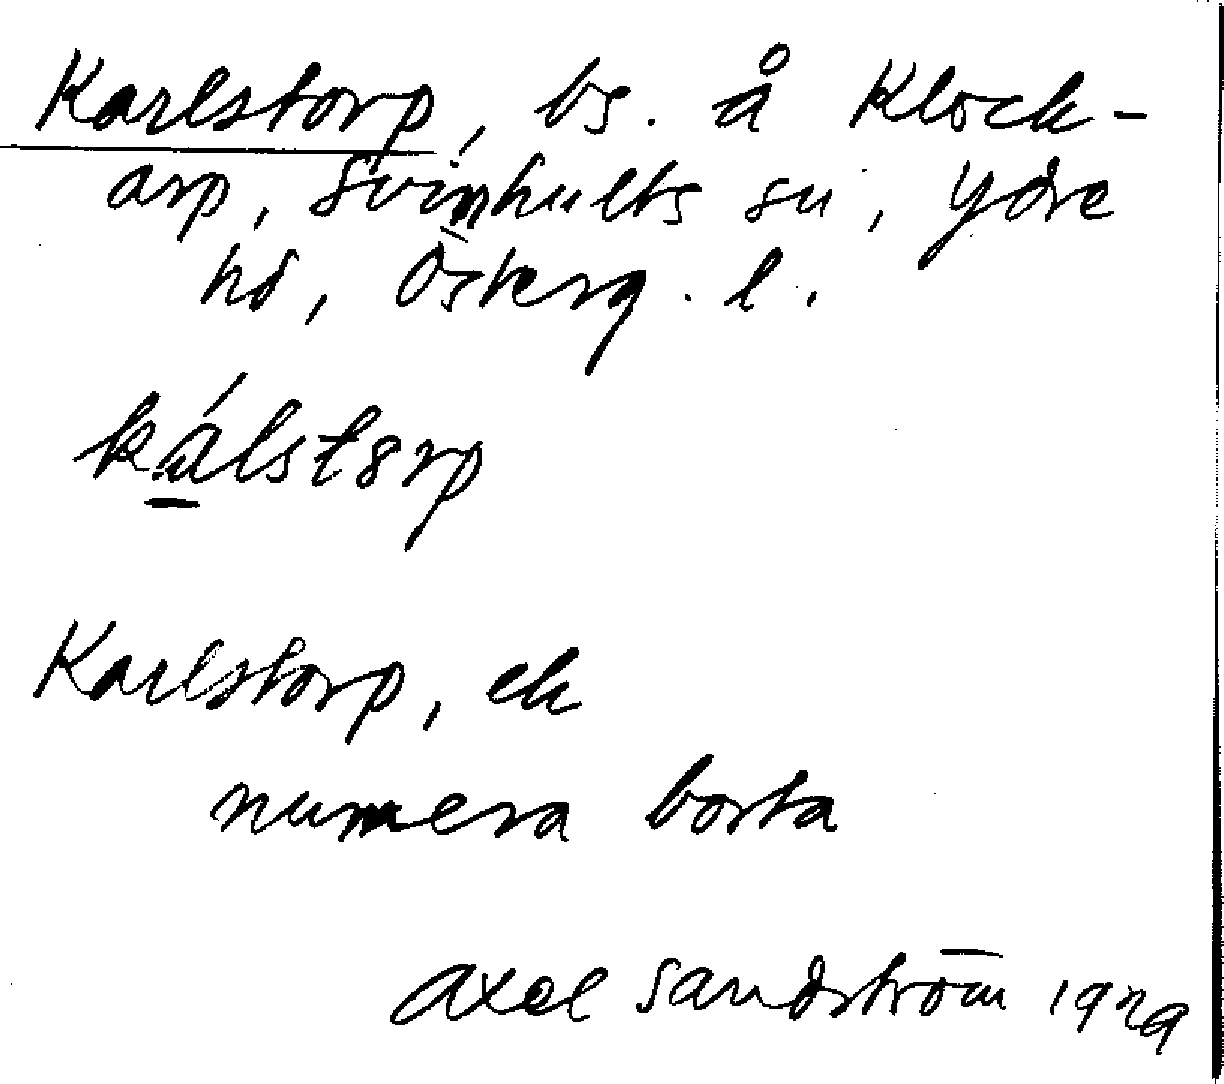 Karlstorp, bs. å Klock-
arp, Svinhults sn, Ydre
hd, Österg. l.
kálstorp
Karlstorp, ek
numera borta
Axel Sandström 1929